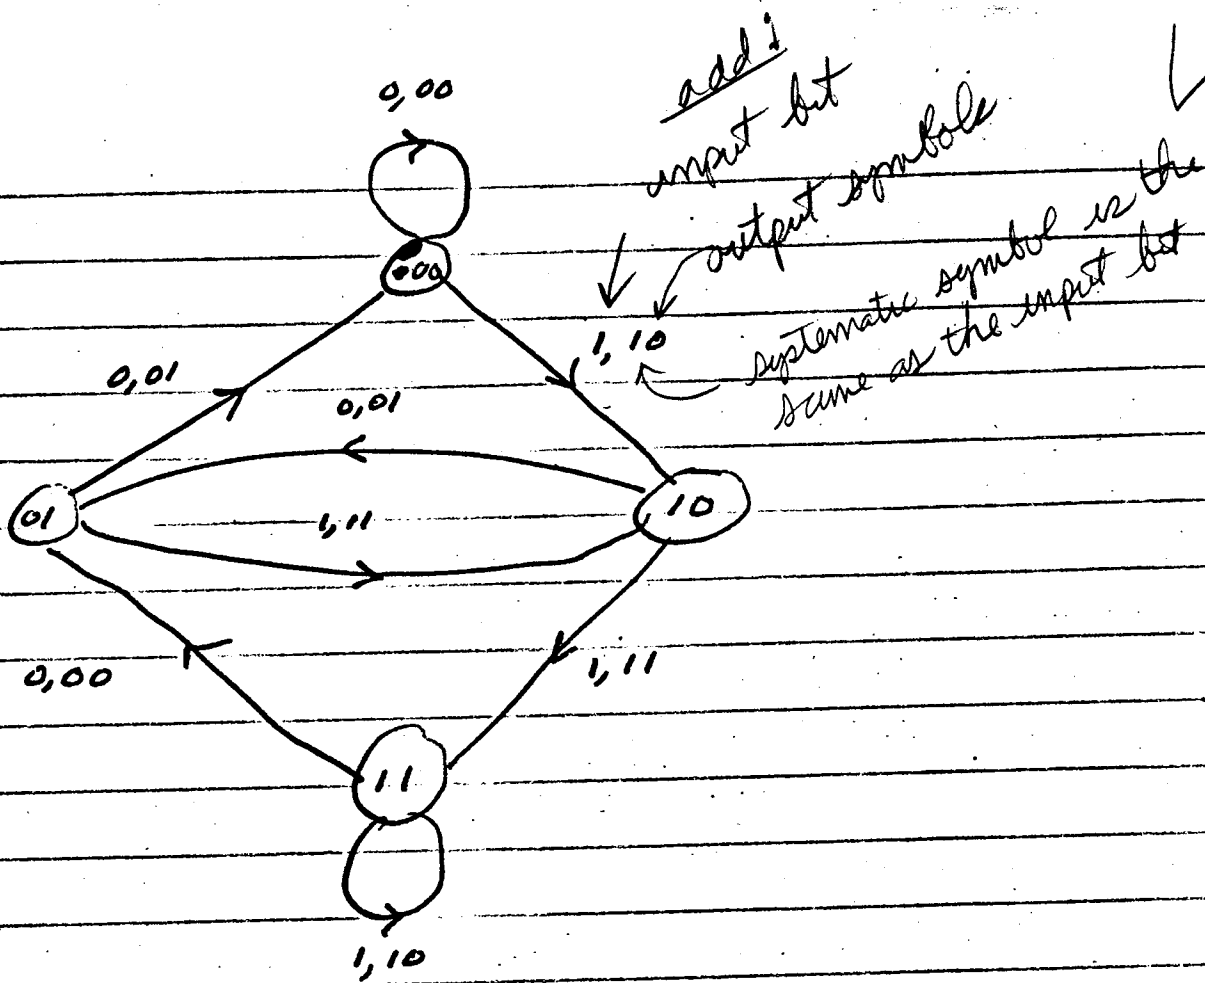 0,00
add:
input bit
output symbols
systematic symbol is the
same as the input bit
00
1,10
0,01
0,01
01
1,11
10
0,00
1,11
11
1,10